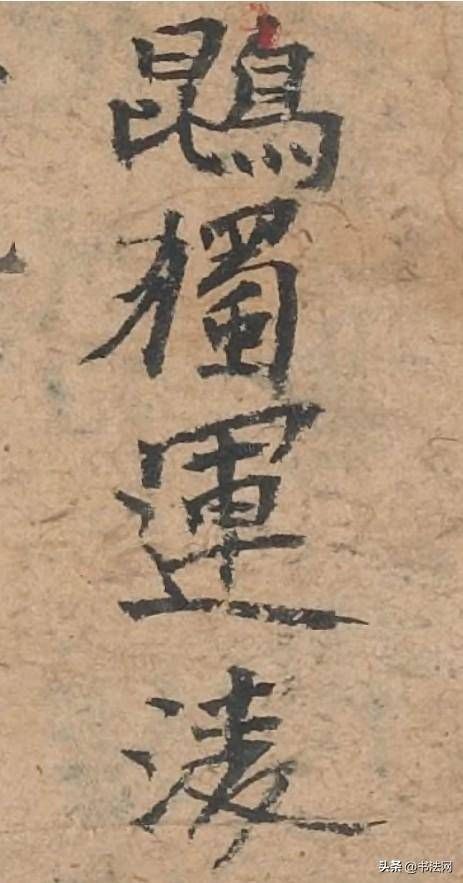 鵾獨運凌
头条 @书法网